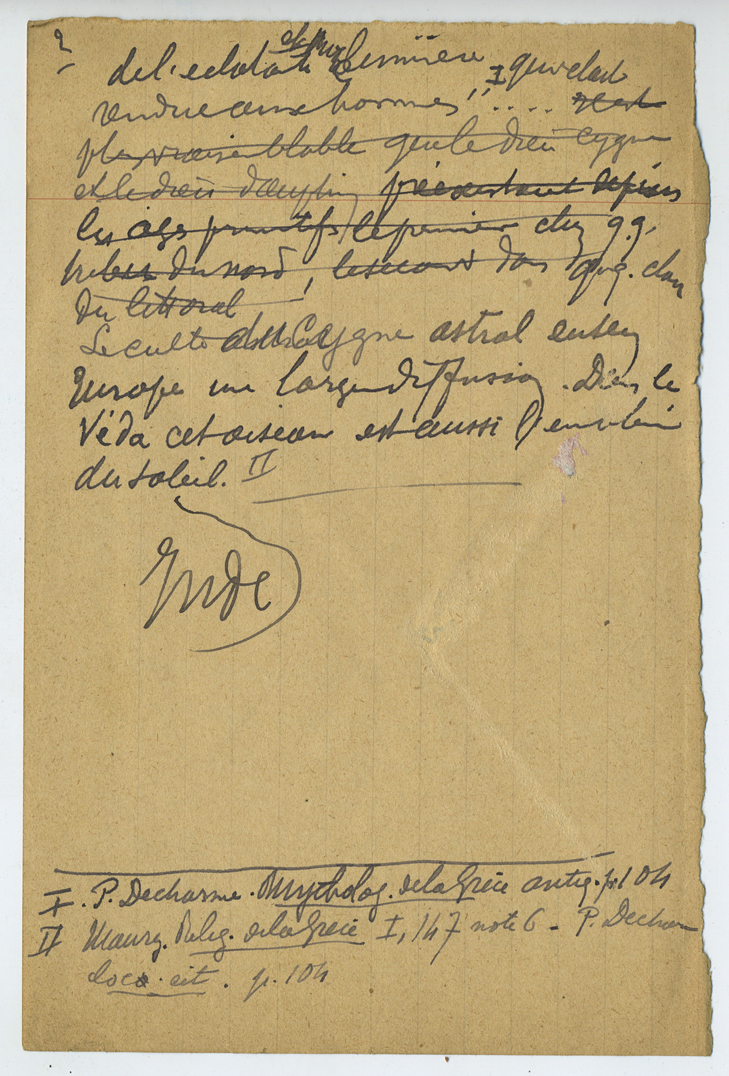 2
et de la
de l'éclat de la lumière, I qui est
rendue aux hommes".... Il est
plus vraisemblable que le dieu cygne
et le dieu dauphin préexistant depuis
les ages primitifs, le premier chez qq.
tribus du nord, le second dans quq. clan
du littoral
Le culte du Cygne astral eut en
Europe une large diffusion. Dans le
Véda cet oiseau est aussi l'emblème
du soleil. II
Inde
I. P. Decharme. Mytholog. de la Grèce antiq. p. 104
II Maury. Relig. de la Grèce I, 147 note 6 - P. Decharme
loco cit. p. 104